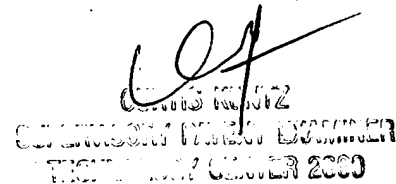 CURTIS KUNTZ
SUPERVISORY PATENT EXAMINER
TECHNOLOGY CENTER 2600